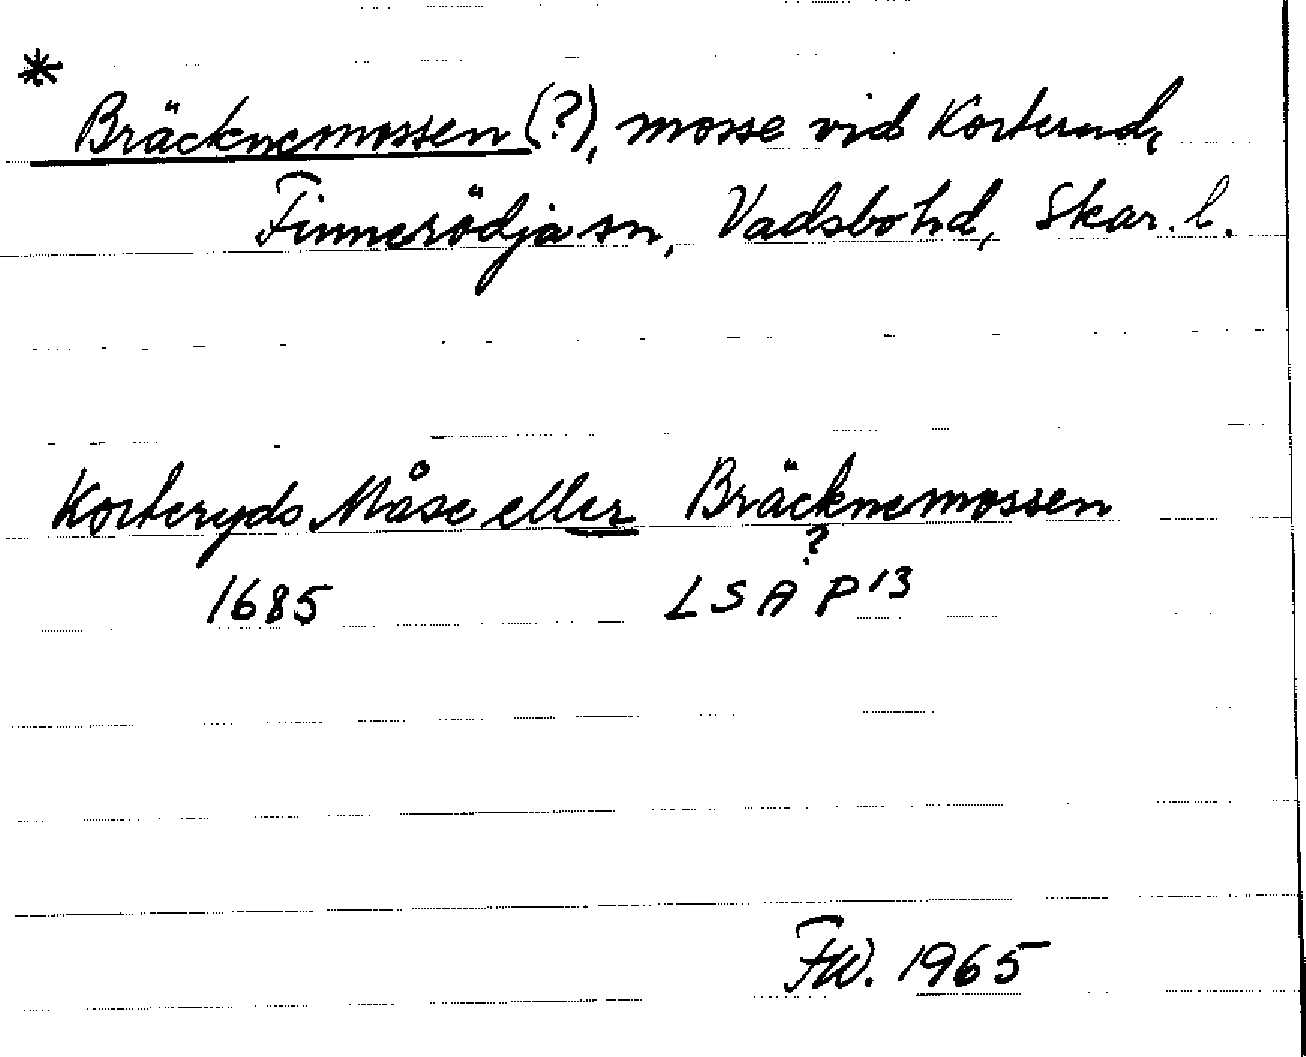 *
Bräcknemossen (?), mosse vid Korterud,
Finnerödja sn, Vadsbo hd, Skar. l.
Korteryds Måse eller Bräcknemossen
?
1685 LSA P 13
FW. 1965